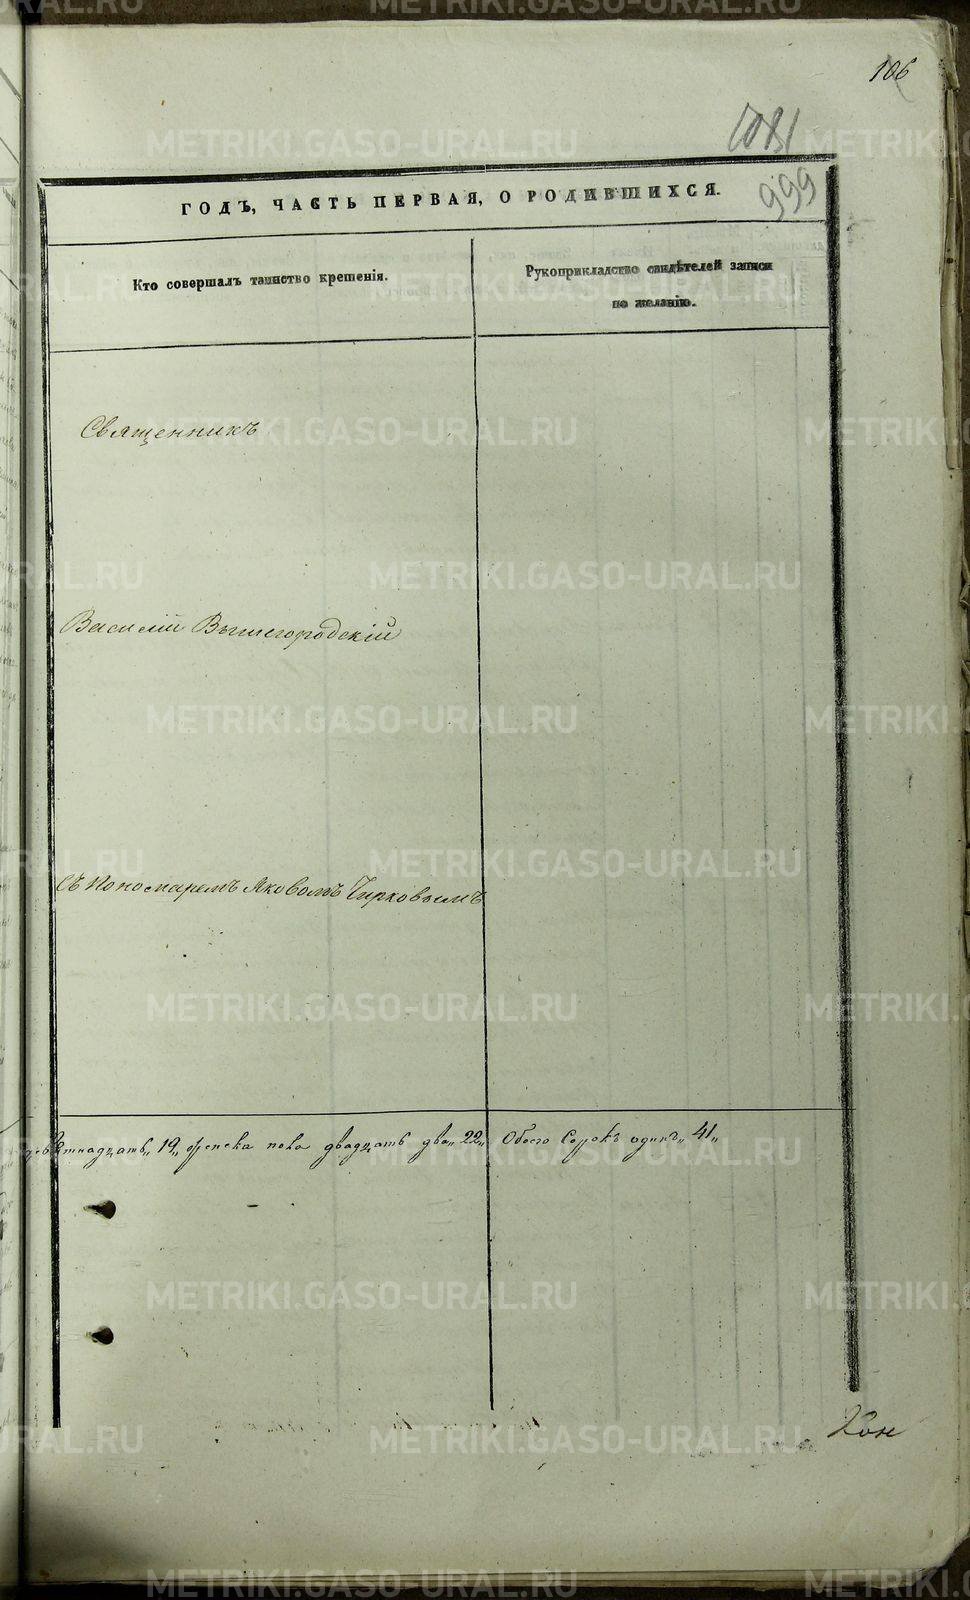 METRIKI.GASO-URAL.RU
106
1081
999
ГОДЪ, ЧАСТЬ ПЕРВАЯ, О РОДИВШИХСЯ.
Кто совершалъ таинство крещенія.
Рукоприкладство свидѣтелей записи
по желанію.
Священникъ
Василій Вышегородскій
Съ Пономаремъ Яковомъ Чирковымъ
девятнадцать „19„ женска пола двадцать два „22„ Обоего Сорокъ одинъ „41„